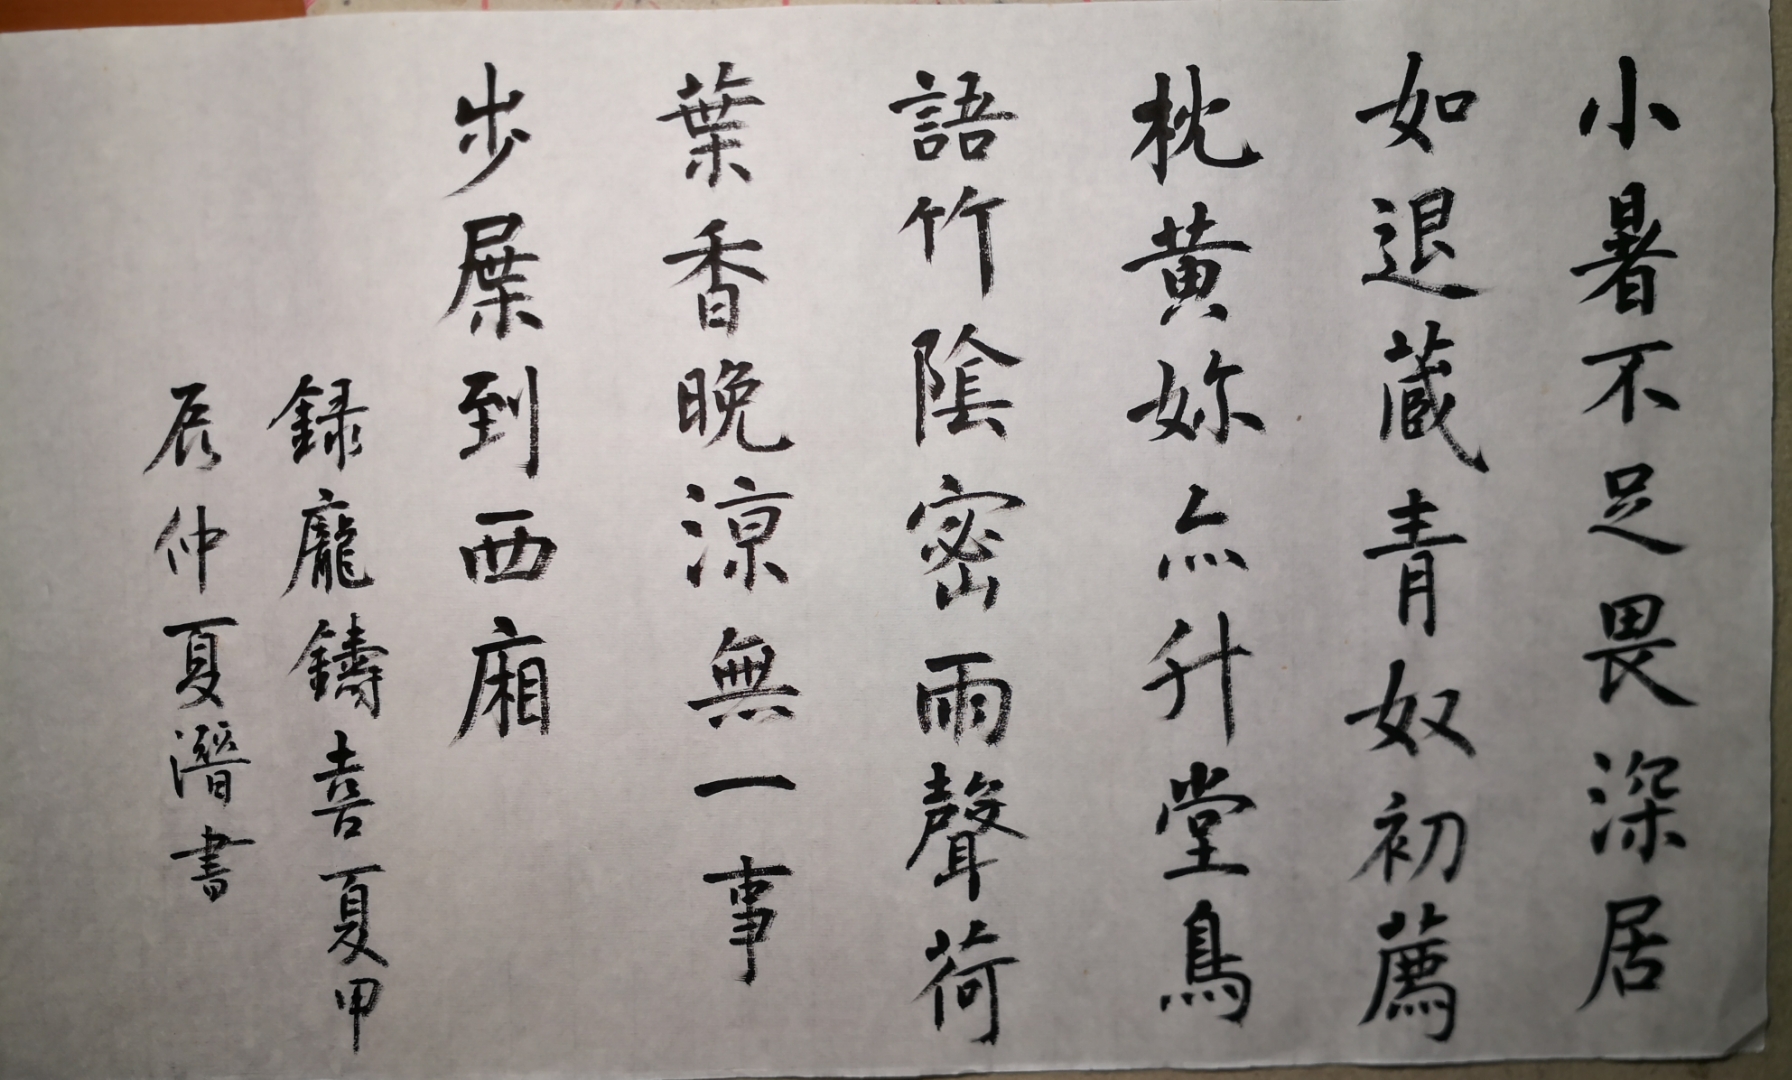 小暑不足畏深居
如退蔵青奴初薦
枕黄妳亦升堂鳥
語竹陰密雨聲荷
葉香晚涼無一事
步屧到西廂
録龐鑄喜夏甲
辰仲夏潛書